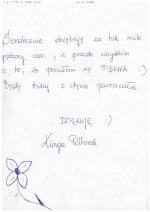 Serdecznie dziękuję za tak mile
spędzony czas, a przede wszystkim
za to, że poczułam się PIĘKNA :)
Będę tutaj z chęcią powracała.
DZIĘKUJĘ :)
Kinga